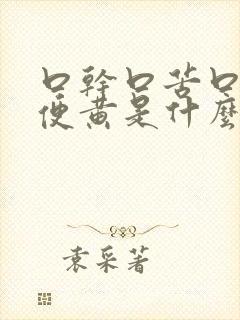 口幹口苦口
便黃是什麼
袁采著